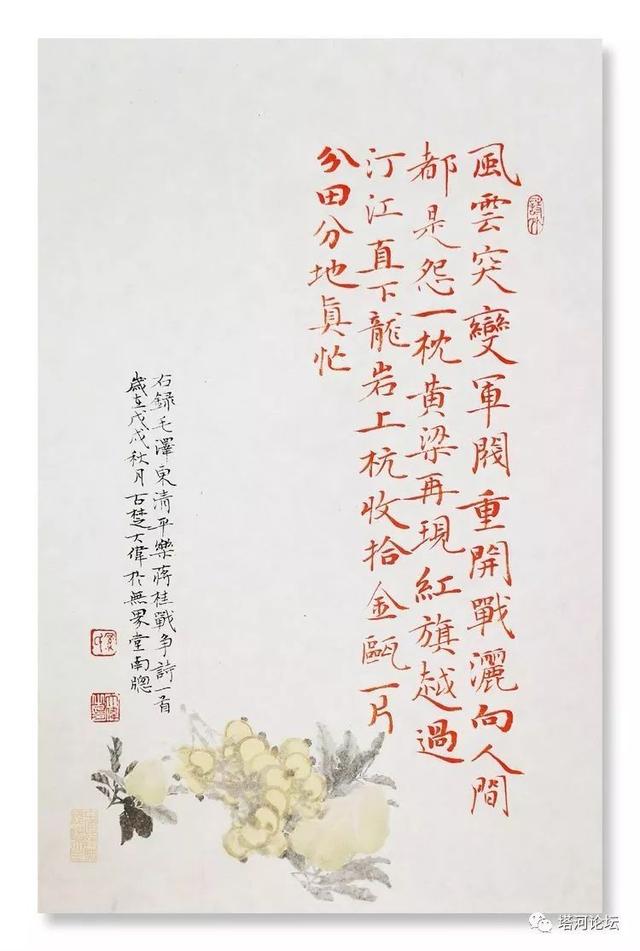 風雲突變軍閥重開戰灑向人間
都是怨一枕黄梁再現紅旗越過
汀江直下龍岩上杭收拾金甌一片
分田分地眞忙
右録毛澤東清平樂蔣桂戰争詩一首
歲在戊戌秋月古楚大偉於無界堂南牕
塔河论坛